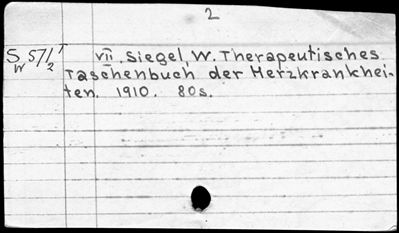 2
S 571/2 T VII. Siegel, W. Therapeutisches
W Taschenbuch der Herzkrankhei-
ten. 1910. 80s.